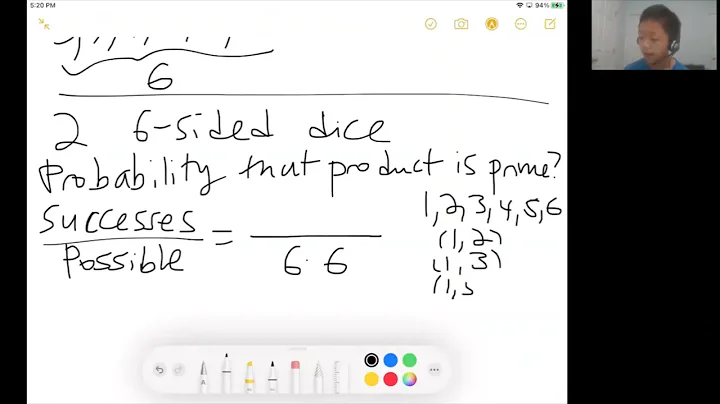 5:20 PM
94%
6
2 6-sided dice
Probability that product is prime?
Successes
Possible
=
6·6
1,2,3,4,5,6
(1,2)
(1,3)
(1,5